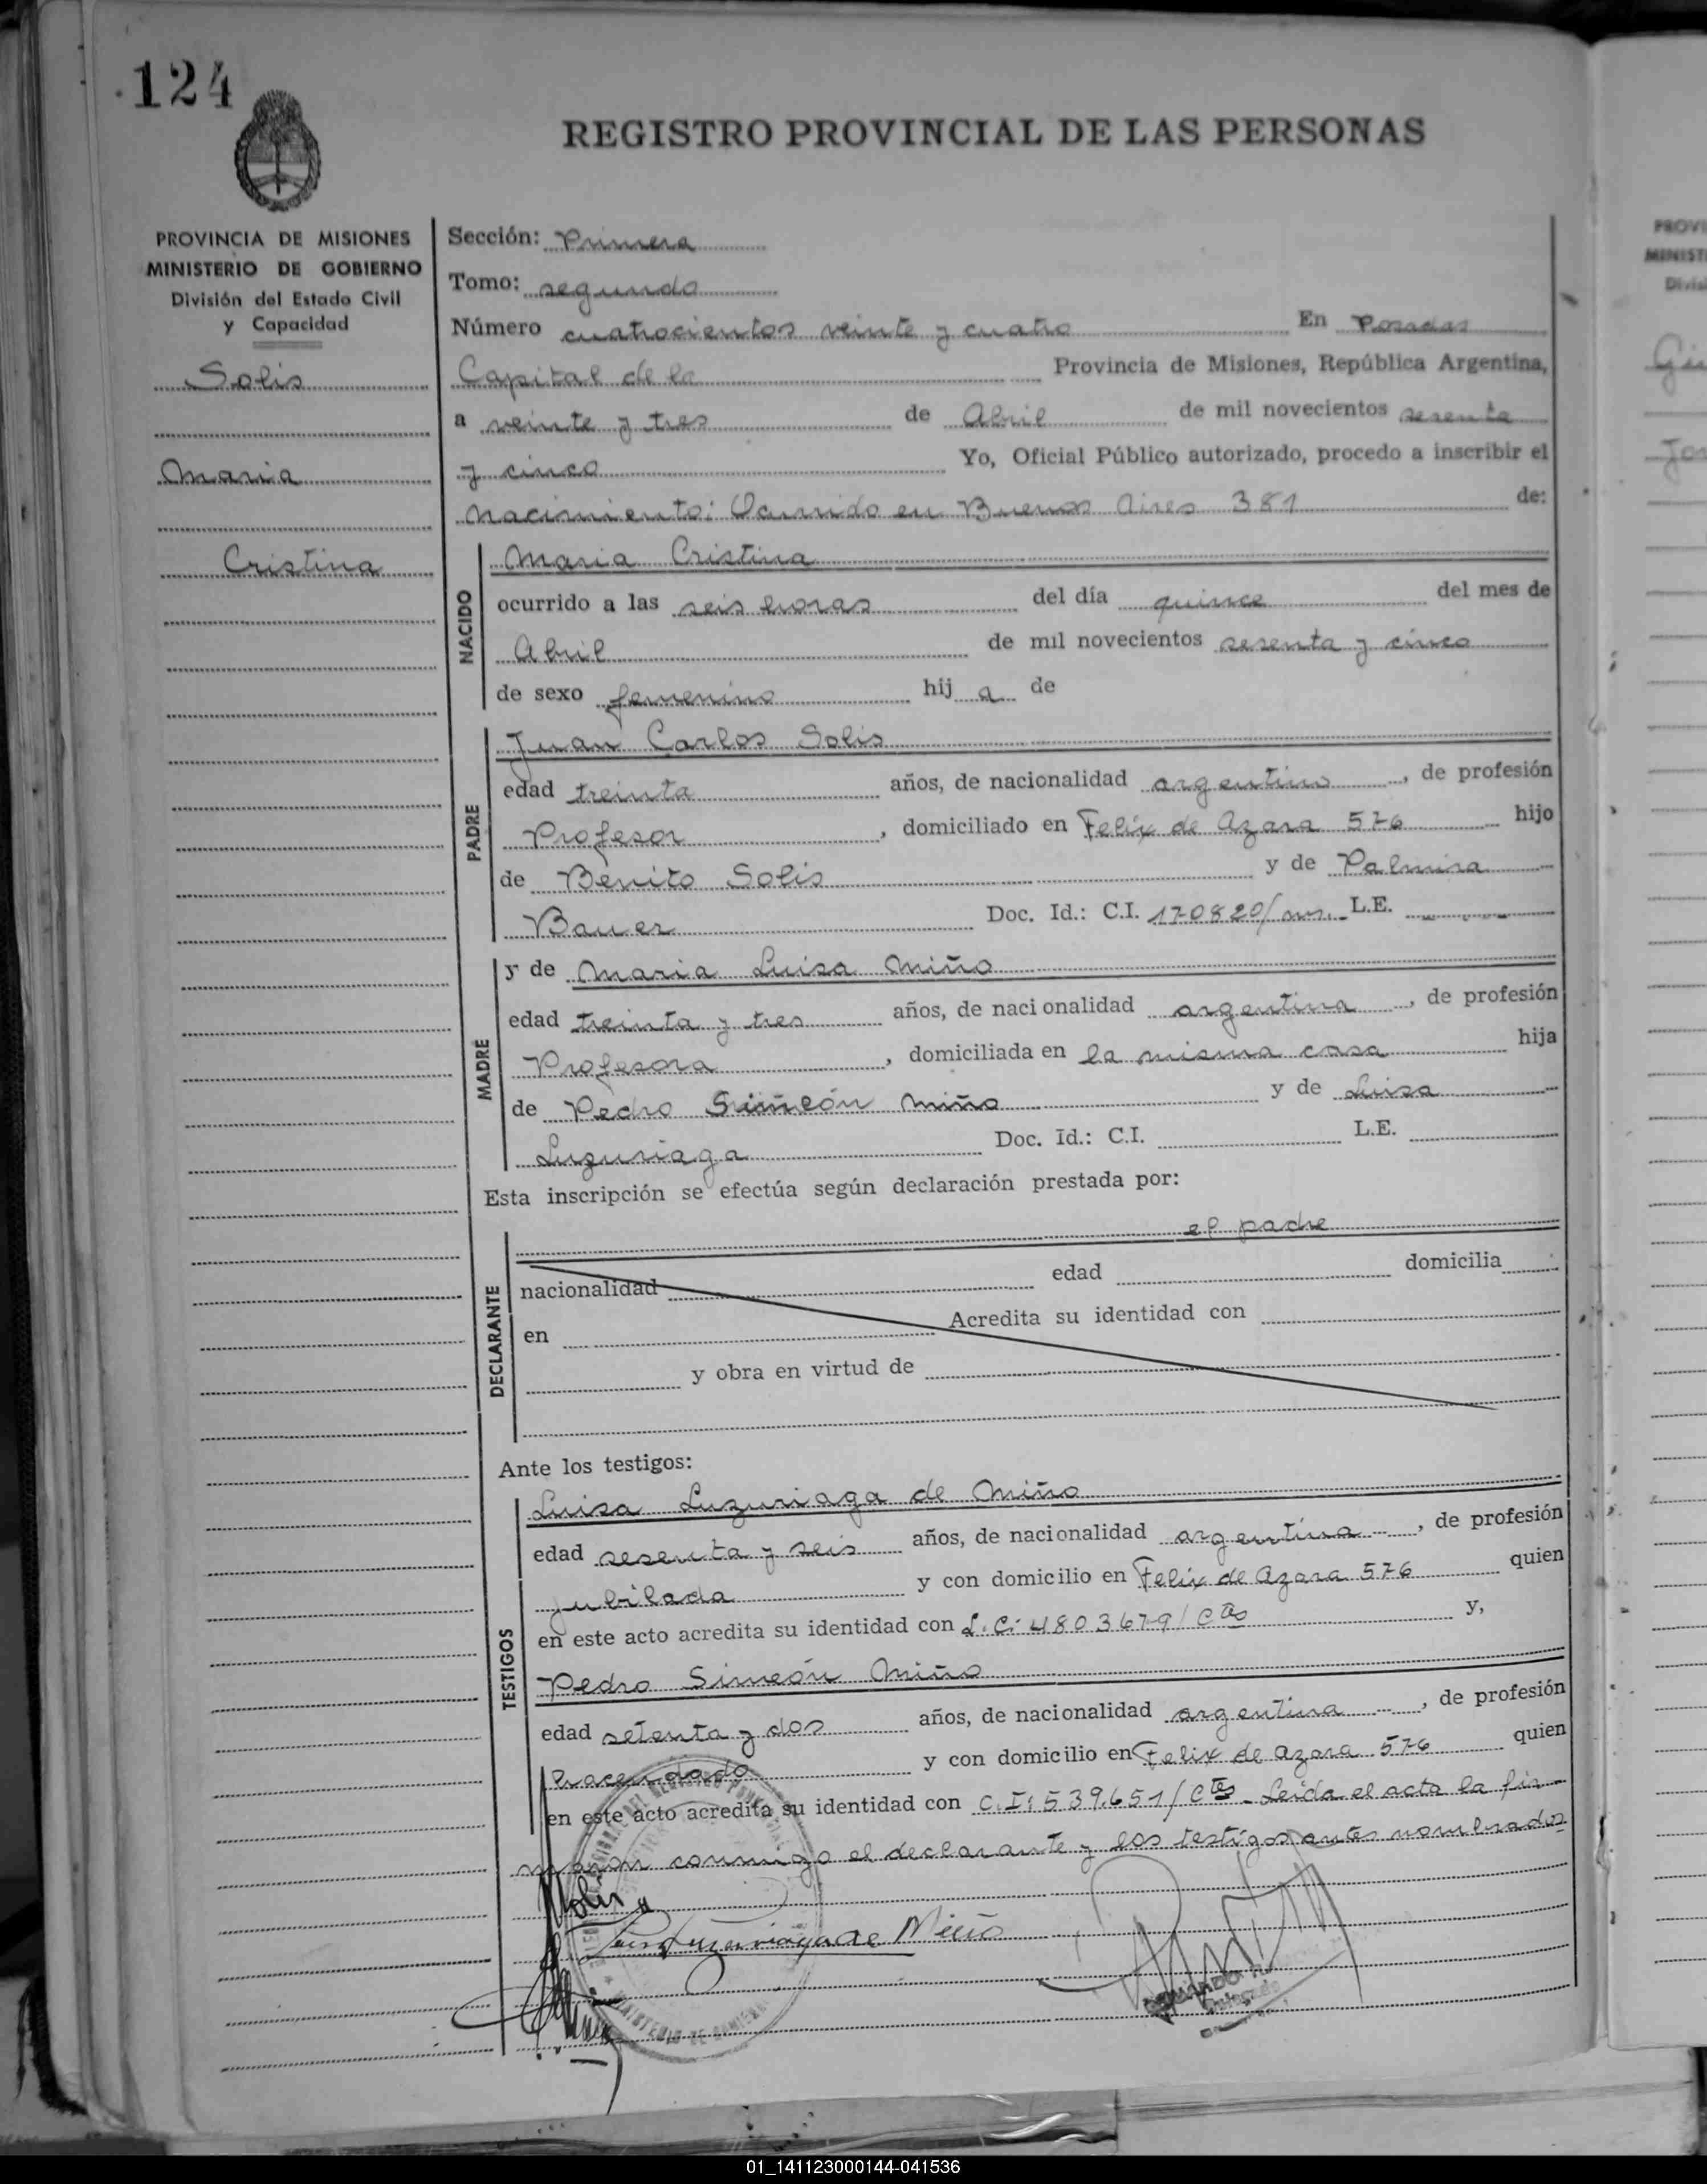 124
REGISTRO PROVINCIAL DE LAS PERSONAS
PROVINCIA DE MISIONES
MINISTERIO DE GOBIERNO
División del Estado Civil
y Capacidad
Solis
Maria
Cristina
Sección: Primera
Tomo: segundo
Número cuatrocientos veinte y cuatro En Posadas
Capital de la Provincia de Misiones, República Argentina,
a veinte y tres de Abril de mil novecientos sesenta
y cinco Yo, Oficial Público autorizado, procedo a inscribir el
nacimiento: Ocurrido en Buenos Aires 381 de:
NACIDO
Maria Cristina
ocurrido a las seis horas del día quince del mes de
Abril de mil novecientos sesenta y cinco
de sexo femenino hij a de
PADRE
Juan Carlos Solis
edad treinta años, de nacionalidad argentino, de profesión
Profesor, domiciliado en Felix de Azara 576 hijo
de Benito Solis y de Palmira
Bauer Doc. Id.: C.I. 170820/ms. L.E.
MADRE
y de Maria Luisa Miño
edad treinta y tres años, de nacionalidad argentina, de profesión
Profesora, domiciliada en la misma casa hija
de Pedro Simeón Miño y de Luisa
Luzuriaga Doc. Id.: C.I. L.E.
Esta inscripción se efectúa según declaración prestada por:
el padre
DECLARANTE
nacionalidad edad domicilia
en Acredita su identidad con
y obra en virtud de
Ante los testigos:
TESTIGOS
Luisa Luzuriaga de Miño
edad sesenta y seis años, de nacionalidad argentina, de profesión
jubilada y con domicilio en Felix de Azara 576 quien
en este acto acredita su identidad con L.C: 4803679/Ctes y,
Pedro Simeón Miño
edad setenta y dos años, de nacionalidad argentina, de profesión
hacendado y con domicilio en Felix de Azara 576 quien
en este acto acredita su identidad con C.I: 539.651/Ctes - Leida el acta la fir-
maron conmigo el declarante y los testigos antes nombrados
Solis
Luzuriaga de Miño
MINISTERIO DE GOBIERNO
01_141123000144-041536